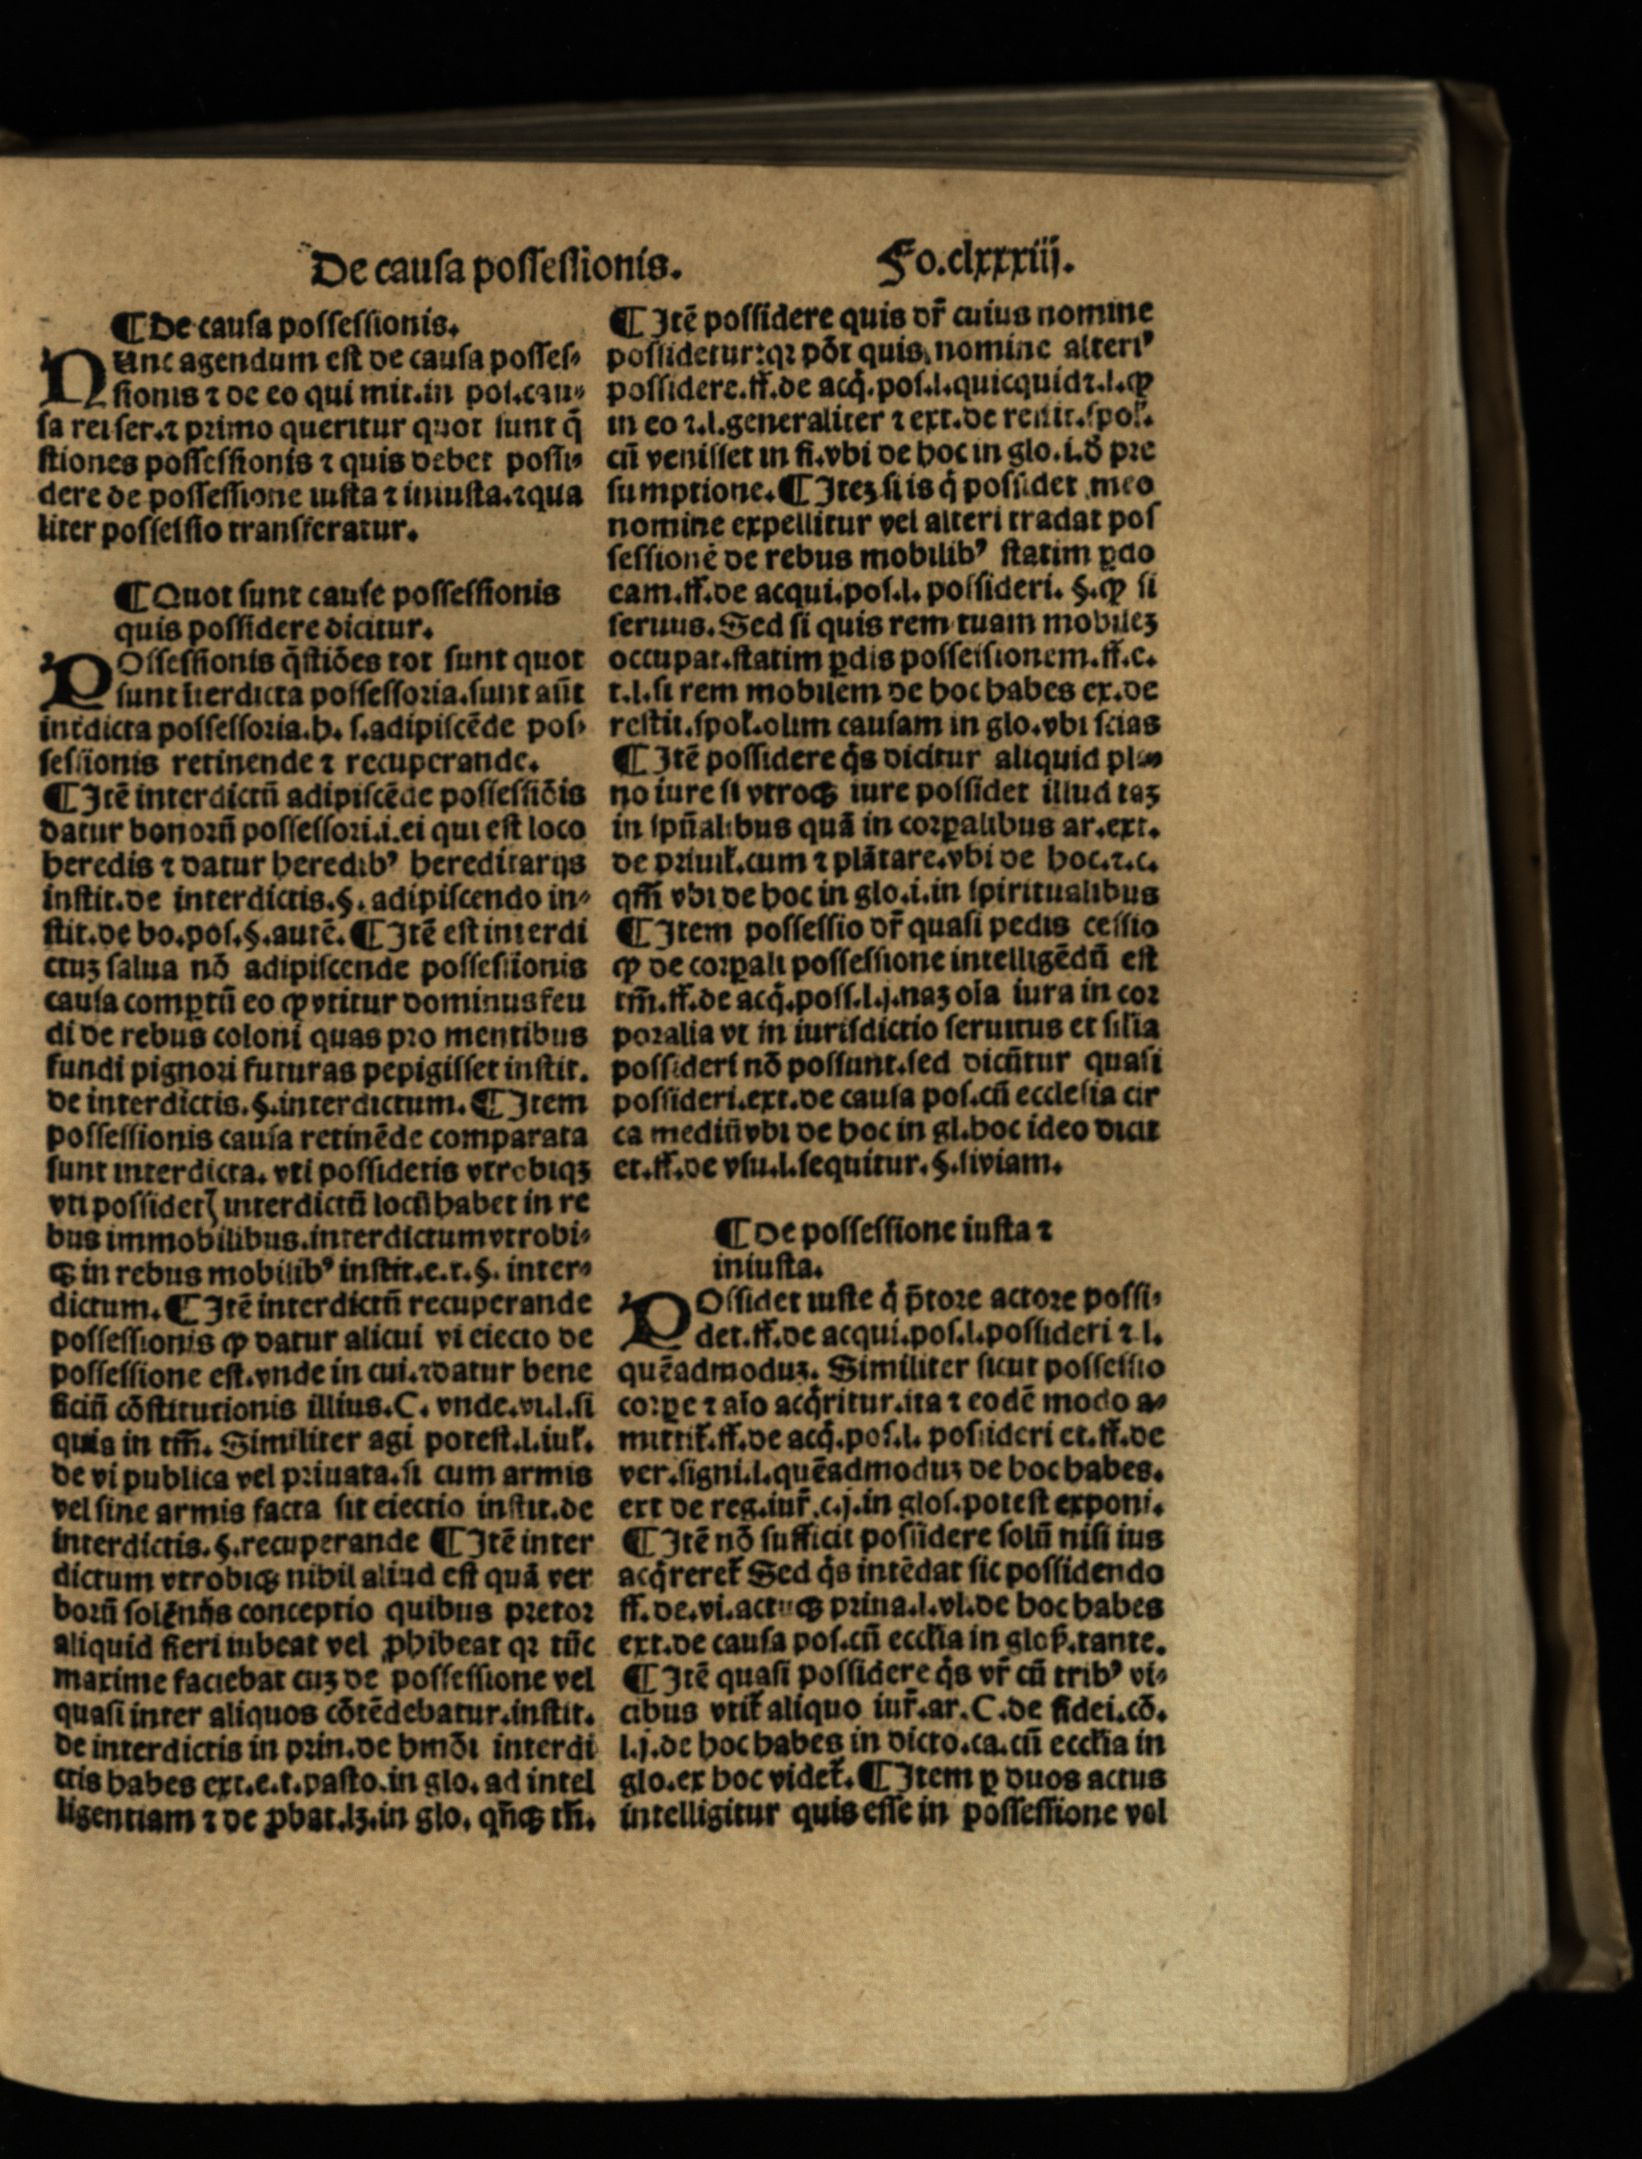 De causa possessionis. Fo.clxxxiij.
¶ De causa possessionis.
NUnc agendum est de causa posses⸗
sionis ⁊ de eo qui mit.in pos.cau⸗
sa rei ser.⁊ primo queritur quot sunt q̄
stiones possessionis ⁊ quis debet possi⸗
dere de possessione iusta ⁊ iniusta.⁊qua
liter possessio transferatur.
¶ Quot sunt cause possessionis
quis possidere dicitur.
POssessionis q̄stiões tot sunt quot
sunt ĩterdicta possessoria.sunt aūt
intdicta possessoria.h. s.adipiscēde pos⸗
sessionis retinende ⁊ recuperande.
¶ Itē interdictū adipiscēde possessiōis
datur bonorū possessori.i.ei qui est loco
heredis ⁊ datur heredibꝰ hereditarijs
instit.de interdictis.§. adipiscendo in⸗
stit.de bo.pos.§.autē. ¶ Itē est interdi
ctuꝫ salua nō adipiscende possessionis
causa comꝑtū eo ꝙ vtitur dominus feu
di de rebus coloni quas pro mentibus
fundi pignori futuras pepigisset instit.
de interdictis. §.interdictum. ¶ Item
possessionis causa retinēde comparata
sunt interdicta. vti possidetis vtrobiqꝫ
vti possidetꝭ interdictū locū habet in re
bus immobilibus.interdictum vtrobi⸗
qꝫ in rebus mobilibꝰ instit.e.t.§. inter⸗
dictum. ¶ Itē interdictū recuperande
possessionis ꝙ datur alicui vi eiecto de
possessione est.vnde in cui.⁊datur bene
ficiū cōstitutionis illius.C. vnde.vi.l.si
quis in tm̄. Similiter agi potest.l.iul̕.
de vi publica vel priuata.si cum armis
vel sine armis facta sit eiectio instit.de
interdictis.§.recuperande ¶ Itē inter
dictum vtrobiqꝫ nihil aliud est quā ver
borū solēnis conceptio quibus pretor
aliquid fieri iubeat vel ꝓhibeat qꝛ tūc
maxime faciebat cuꝫ de possessione vel
quasi inter aliquos cōtēdebatur.instit.
de interdictis in prin.de hmōi interdi
ctis habes ext.e.t.pasto.in glo. ad intel
ligentiam ⁊ de ꝓbat.lꝫ.in glo. qn̄qꝫ tn̄.
¶ Itē possidere quis dr̄ cuius nomine
possidetur:qꝛ pōt quis nomine alteriꝰ
possidere.ff.de acq̇.pos.l.quicquid⁊.l.ꝙ
in eo ⁊.l.generaliter ⁊ ext.de restit.spol̕.
cū venisset in fi.vbi de hoc in glo.i.ð pre
sumptione. ¶ Iteꝫ si is q̇ possidet meo
nomine expellitur vel alteri tradat pos
sessionē de rebus mobilibꝰ statim ꝑdo
cam.ff.de acqui.pos.l. possideri. §.ꝙ si
seruus. Sed si quis rem tuam mobileꝫ
occupat.statim ꝑdis possessionem.ff.e.
t.l.si rem mobilem de hoc habes ex.de
restit.spol̕.olim causam in glo.vbi scias
¶ Itē possidere q̇s dicitur aliquid ple⸗
no iure si vtroqꝫ iure possidet illud taꝫ
in spūalibus quā in corꝑalibus ar.ext.
de priuil̕.cum ⁊ plātare.vbi de hoc.⁊.c.
qm̄ vbi de hoc in glo.i.in spiritualibus
¶ Item possessio dr̄ quasi pedis cessio
ꝙ de corꝑali possessione intelligēdū est
tm̄.ff.de acq̇.poss.l.j.naꝫ oīa iura in cor
poralia vt in iurisdictio seruitus et silīa
possideri nō possunt.sed dicūtur quasi
possideri.ext.de causa pos.cū ecclesia cir
ca mediū vbi de hoc in gl.hoc ideo dicit
et.ff.de vsu.l.sequitur.§.si viam.
¶ De possessione iusta ⁊
iniusta.
POssidet iuste q̇ p̄tore actore possi⸗
det.ff.de acqui.pos.l.possideri ⁊ l.
quēadmoduꝫ. Similiter sicut possessio
corꝑe ⁊ aīo acq̇ritur.ita ⁊ eodē modo a⸗
mittit̕.ff.de acq̇.pos.l. possideri et.ff.de
ver.signi.l.quēadmoduꝫ de hoc habes.
ext de reg.iur̄.c.j.in glos.potest exponi.
¶ Itē nō sufficit possidere solū nisi ius
acq̇reret̕ Sed q̇s intēdat sic possidendo
ff.de.vi.actuqꝫ priua.l.vl.de hoc habes
ext.de causa pos.cū eccl̄ia in glo p̄.tante.
¶ Itē quasi possidere q̇s vr̄ cū tribꝰ vi⸗
cibus vtit̕ aliquo iur̄.ar.C.de fidei.cō.
l.j.de hoc habes in dicto.ca.cū eccl̄ia in
glo.ex hoc videt̕. ¶ Item ꝑ duos actus
intelligitur quis esse in possessione vel